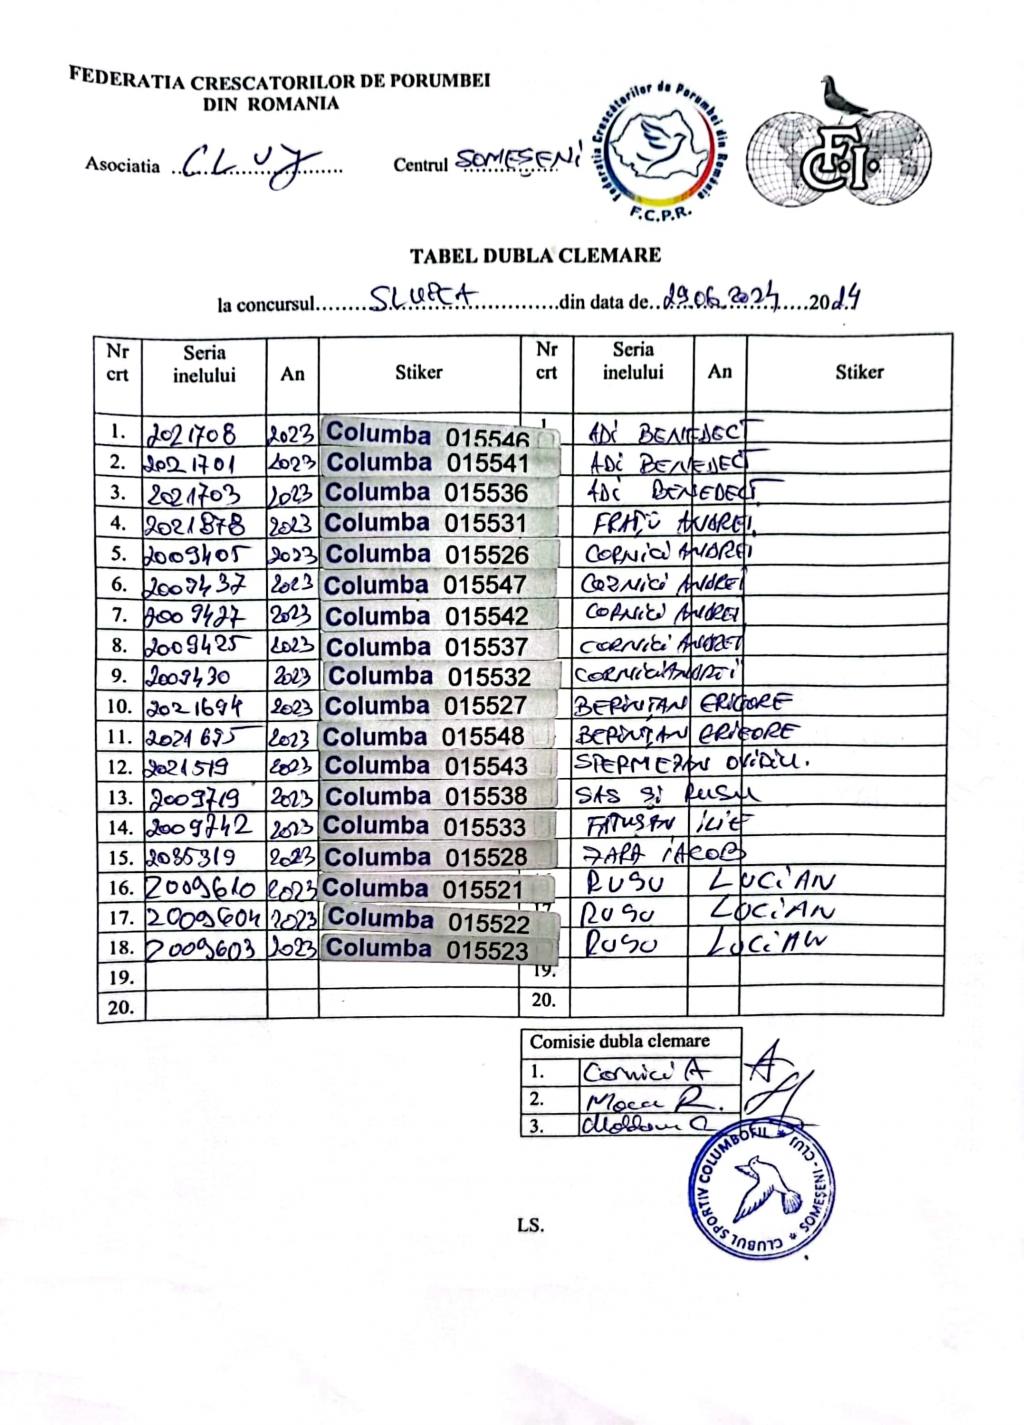 FEDERATIA CRESCATORILOR DE PORUMBEI
DIN ROMANIA
Asociatia ..CLUJ.......... Centrul SOMEȘENI
Federatia Crescătorilor de Porumbei din România
F.C.P.R.
F.C.I.
TABEL DUBLA CLEMARE
la concursul........SLUPCA..............din data de..29.06.2024.....2024
Nr crt Seria inelului An Stiker Nr crt Seria inelului An Stiker
1. 2021708 2023 Columba 015546 1 ADI BENEDECT
2. 2021701 2023 Columba 015541 ADI BENEDECT
3. 2021703 2023 Columba 015536 ADI BENEDECT
4. 2021878 2023 Columba 015531 ANDREI
5. 2009405 2023 Columba 015526 CORNICI ANDREI
6. 2009437 2023 Columba 015547 CORNICI ANDREI
7. 2009427 2023 Columba 015542 CORNICI ANDREI
8. 2009425 2023 Columba 015537 CORNICI ANDREI
9. 2009430 2023 Columba 015532 CORNICI ANDREI
10. 2021694 2023 Columba 015527 BERINȚAN GRIGORE
11. 2021695 2023 Columba 015548 BERINȚAN GRIGORE
12. 2021519 2023 Columba 015543 SPERMEZAN OVIDIU.
13. 2009719 2023 Columba 015538 SAS ȘI RUSU
14. 2009742 2023 Columba 015533 ILIE
15. 2085319 2023 Columba 015528 IACOB
16. 2009610 2023 Columba 015521 RUSU LUCIAN
17. 2009604 2023 Columba 015522 17 RUSU LUCIAN
18. 2009603 2023 Columba 015523 RUSU LUCIAN
19. 19.
20. 20.
Comisie dubla clemare
1. Cornici A
2. Moca R.
3. Moldovan C
CLUBUL SPORTIV COLUMBOFIL * SOMEȘENI - CLUJ *
LS.